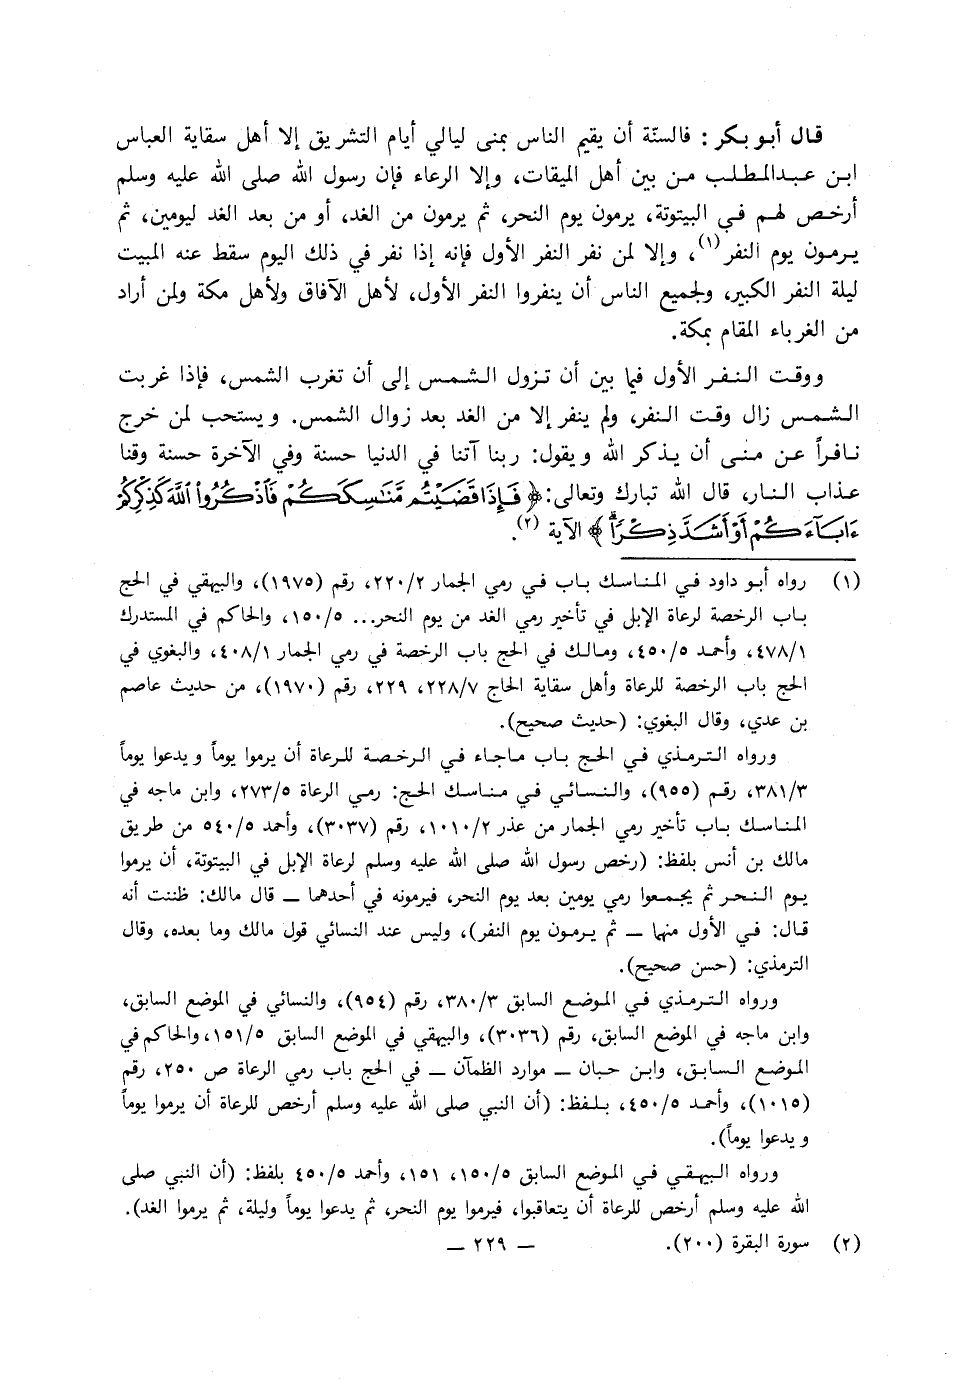 قال أبو بكر : فالسنّة أن يقيم الناس بمنى ليالي أيام التشريق إلا أهل سقاية العباس
ابن عبدالمطلب من بين أهل الميقات، وإلا الرعاء فإن رسول الله صلى الله عليه وسلم
أرخص لهم في البيتوتة، يرمون يوم النحر، ثم يرمون من الغد، أو من بعد الغد ليومين، ثم
يرمون يوم النفر(١)، وإلا لمن نفر النفر الأول فإنه إذا نفر في ذلك اليوم سقط عنه المبيت
ليلة النفر الكبير، ولجميع الناس أن ينفروا النفر الأول، لأهل الآفاق ولأهل مكة ولمن أراد
من الغرباء المقام بمكة.
ووقت النفر الأول فيما بين أن تزول الشمس إلى أن تغرب الشمس، فإذا غربت
الشمس زال وقت النفر، ولم ينفر إلا من الغد بعد زوال الشمس. ويستحب لمن خرج
نافراً عن منى أن يذكر الله ويقول: ربنا آتنا في الدنيا حسنة وفي الآخرة حسنة وقنا
عذاب النار، قال الله تبارك وتعالى: ﴿ فَإِذَا قَضَيْتُم مَّنَاسِكَكُمْ فَاذْكُرُوا اللَّهَ كَذِكْرِكُمْ
ءَابَآءَكُمْ أَوْ أَشَدَّ ذِكْرًا ﴾ الآية (٢).
(١) رواه أبو داود في المناسك باب في رمي الجمار ٢/ ٢٢٠، رقم (١٩٧٥)، والبيهقي في الحج
باب الرخصة لرعاة الإبل في تأخير رمي الغد من يوم النحر... ٥/ ١٥٠، والحاكم في المستدرك
١/ ٤٧٨، وأحمد ٥/ ٤٥٠، ومالك في الحج باب الرخصة في رمي الجمار ١/ ٤٠٨، والبغوي في
الحج باب الرخصة للرعاة وأهل سقاية الحاج ٧/ ٢٢٨، ٢٢٩، رقم (١٩٧٠)، من حديث عاصم
بن عدي، وقال البغوي: (حديث صحيح).
ورواه الترمذي في الحج باب ماجاء في الرخصة للرعاة أن يرموا يوماً ويدعوا يوماً
٣/ ٣٨١، رقم (٩٥٥)، والنسائي في مناسك الحج: رمي الرعاة ٥/ ٢٧٣، وابن ماجه في
المناسك باب تأخير رمي الجمار من عذر ٢/ ١٠١٠، رقم (٣٠٣٧)، وأحمد ٥/ ٥٤٠ من طريق
مالك بن أنس بلفظ: (رخص رسول الله صلى الله عليه وسلم لرعاة الإبل في البيتوتة، أن يرموا
يوم النحر ثم يجمعوا رمي يومين بعد يوم النحر، فيرمونه في أحدهما — قال مالك: ظننت أنه
قال: في الأول منهما — ثم يرمون يوم النفر)، وليس عند النسائي قول مالك وما بعده، وقال
الترمذي: (حسن صحيح).
ورواه الترمذي في الموضع السابق ٣/ ٣٨٠، رقم (٩٥٤)، والنسائي في الموضع السابق،
وابن ماجه في الموضع السابق، رقم (٣٠٣٦)، والبيهقي في الموضع السابق ٥/ ١٥١، والحاكم في
الموضع السابق، وابن حبان — موارد الظمآن — في الحج باب رمي الرعاة ص ٢٥٠، رقم
(١٠١٥)، وأحمد ٥/ ٤٥٠، بلفظ: (أن النبي صلى الله عليه وسلم أرخص للرعاة أن يرموا يوماً
ويدعوا يوماً).
ورواه البيهقي في الموضع السابق ٥/ ١٥٠، ١٥١، وأحمد ٥/ ٤٥٠ بلفظ: (أن النبي صلى
الله عليه وسلم أرخص للرعاة أن يتعاقبوا، فيرموا يوم النحر، ثم يدعوا يوماً وليلة، ثم يرموا الغد).
(٢) سورة البقرة (٢٠٠).
— ٢٢٩ —